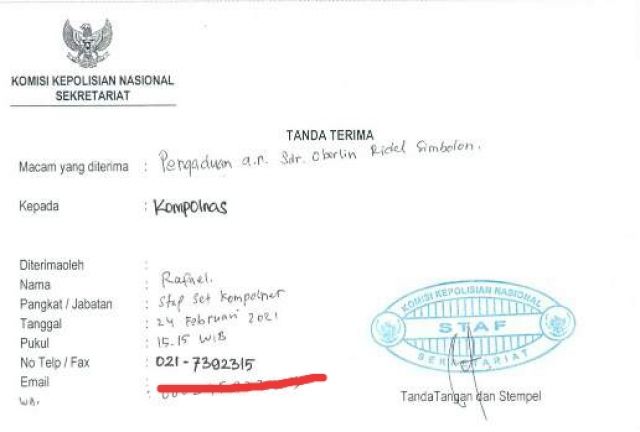 KOMISI KEPOLISIAN NASIONAL
SEKRETARIAT
TANDA TERIMA
Macam yang diterima : Pengaduan a.n. Sdr. Oberlin Ridel Simbolon.
Kepada : Kompolnas
Diterimaoleh :
Nama : Rafael.
Pangkat / Jabatan : Staf Set Kompolnas
Tanggal : 24 Februari 2021
Pukul : 15.15 WIB
No Telp / Fax : 021-7392315
Email :
WA.
KOMISI KEPOLISIAN NASIONAL
STAF
SEKRETARIAT
TandaTangan dan Stempel